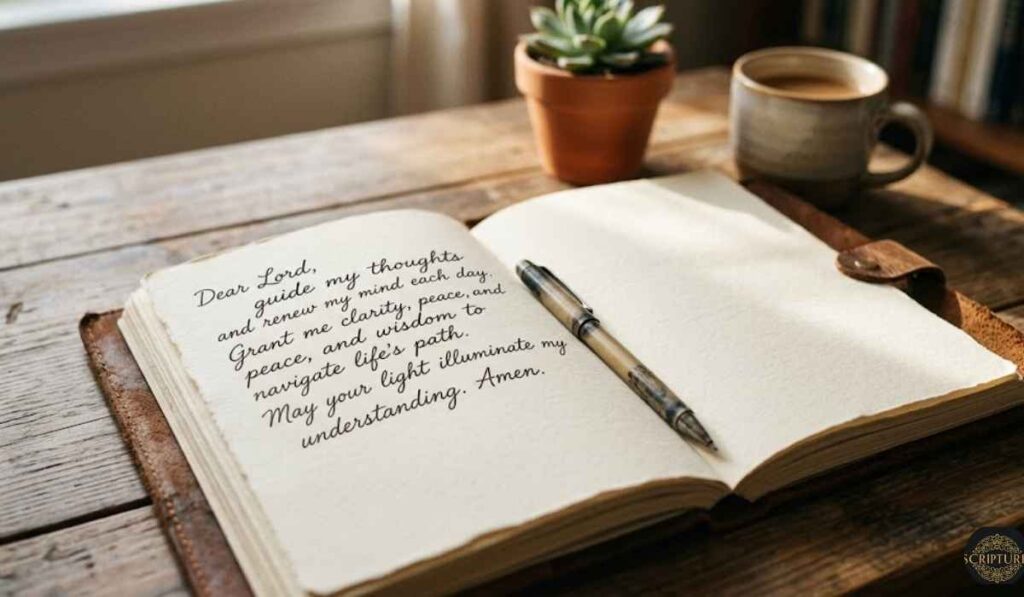 Dear Lord,
guide my thoughts
and renew my mind each day.
Grant me clarity, peace, and
peace, and wisdom to
navigate life's path.
May your light illuminate my
understanding. Amen.
SCRIPTURE